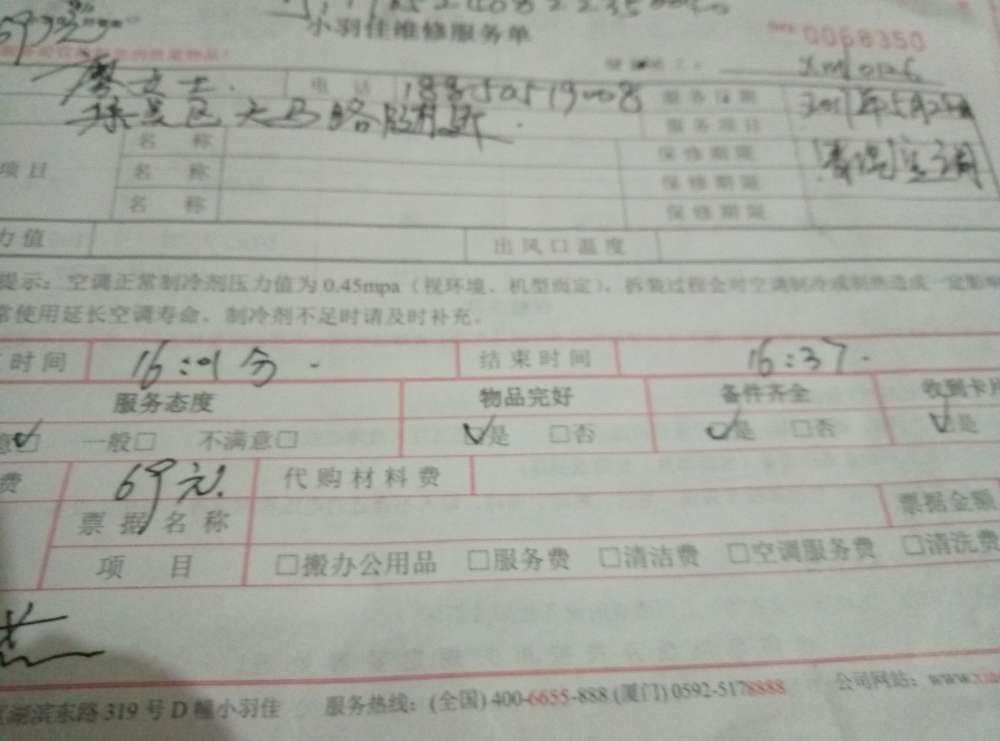 小羽佳维修服务单
0068350
电话 18850519008 服务日期
大马路 服务项目
名称 保修期限 清洗空调
项目 名称 保修期限
名称 保修期限
力值 出风口温度
提示：空调正常制冷剂压力值为0.45mpa（视环境、机型而定），拆装过程会对空调制冷或制热造成一定影响
常使用延长空调寿命，制冷剂不足时请及时补充。
时间 16:01分 结束时间 16:37
服务态度 物品完好 备件齐全 收到卡片
意☑ 一般□ 不满意□ ☑是 □否 ☑是 □否 ☑是
费 69元 代购材料费
票据名称 票据金额
项目 □搬办公用品 □服务费 □清洁费 □空调服务费 □清洗费
区湖滨东路319号D幢小羽佳 服务热线：(全国) 400-6655-888 (厦门) 0592-5178888 公司网站：www.xia